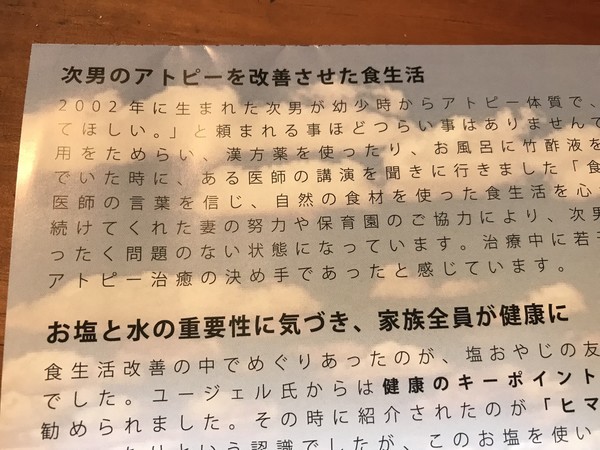 次男のアトピーを改善させた食生活
2002年に生まれた次男が幼少時からアトピー体質で、
てほしい。」と頼まれる事ほどつらい事はありませんで
用をためらい、漢方薬を使ったり、お風呂に竹酢液を
でいた時に、ある医師の講演を聞きに行きました「食
医師の言葉を信じ、自然の食材を使った食生活を心
続けてくれた妻の努力や保育園のご協力により、次男
ったく問題のない状態になっています。治療中に若干
アトピー治癒の決め手であったと感じています。
お塩と水の重要性に気づき、家族全員が健康に
食生活改善の中でめぐりあったのが、塩おやじの友
でした。ユージェル氏からは健康のキーポイント
勧められました。その時に紹介されたのが「ヒマ
という認識でしたが、このお塩を使い